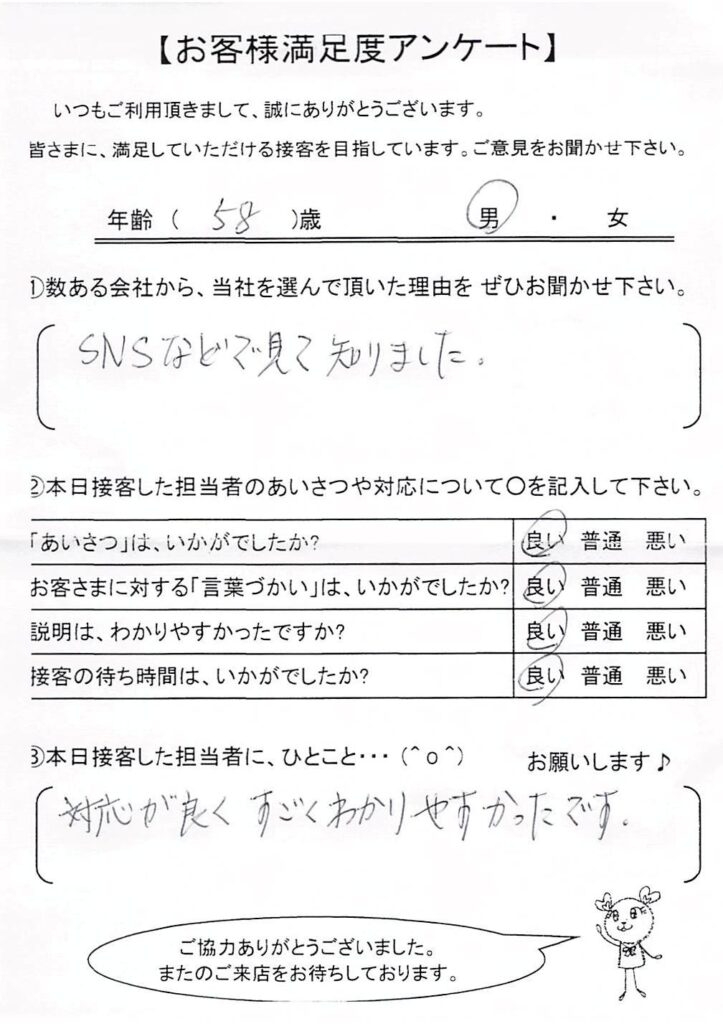 【お客様満足度アンケート】
いつもご利用頂きまして、誠にありがとうございます。
皆さまに、満足していただける接客を目指しています。ご意見をお聞かせ下さい。
年齢（ 58 ）歳 男 ・ 女
①数ある会社から、当社を選んで頂いた理由を ぜひお聞かせ下さい。
SNSなどで見て知りました。
②本日接客した担当者のあいさつや対応について〇を記入して下さい。
「あいさつ」は、いかがでしたか? 良い 普通 悪い
お客さまに対する「言葉づかい」は、いかがでしたか? 良い 普通 悪い
説明は、わかりやすかったですか? 良い 普通 悪い
接客の待ち時間は、いかがでしたか? 良い 普通 悪い
③本日接客した担当者に、ひとこと・・・（＾ｏ＾） お願いします♪
対応が良くすごくわかりやすかったです。
ご協力ありがとうございました。
またのご来店をお待ちしております。